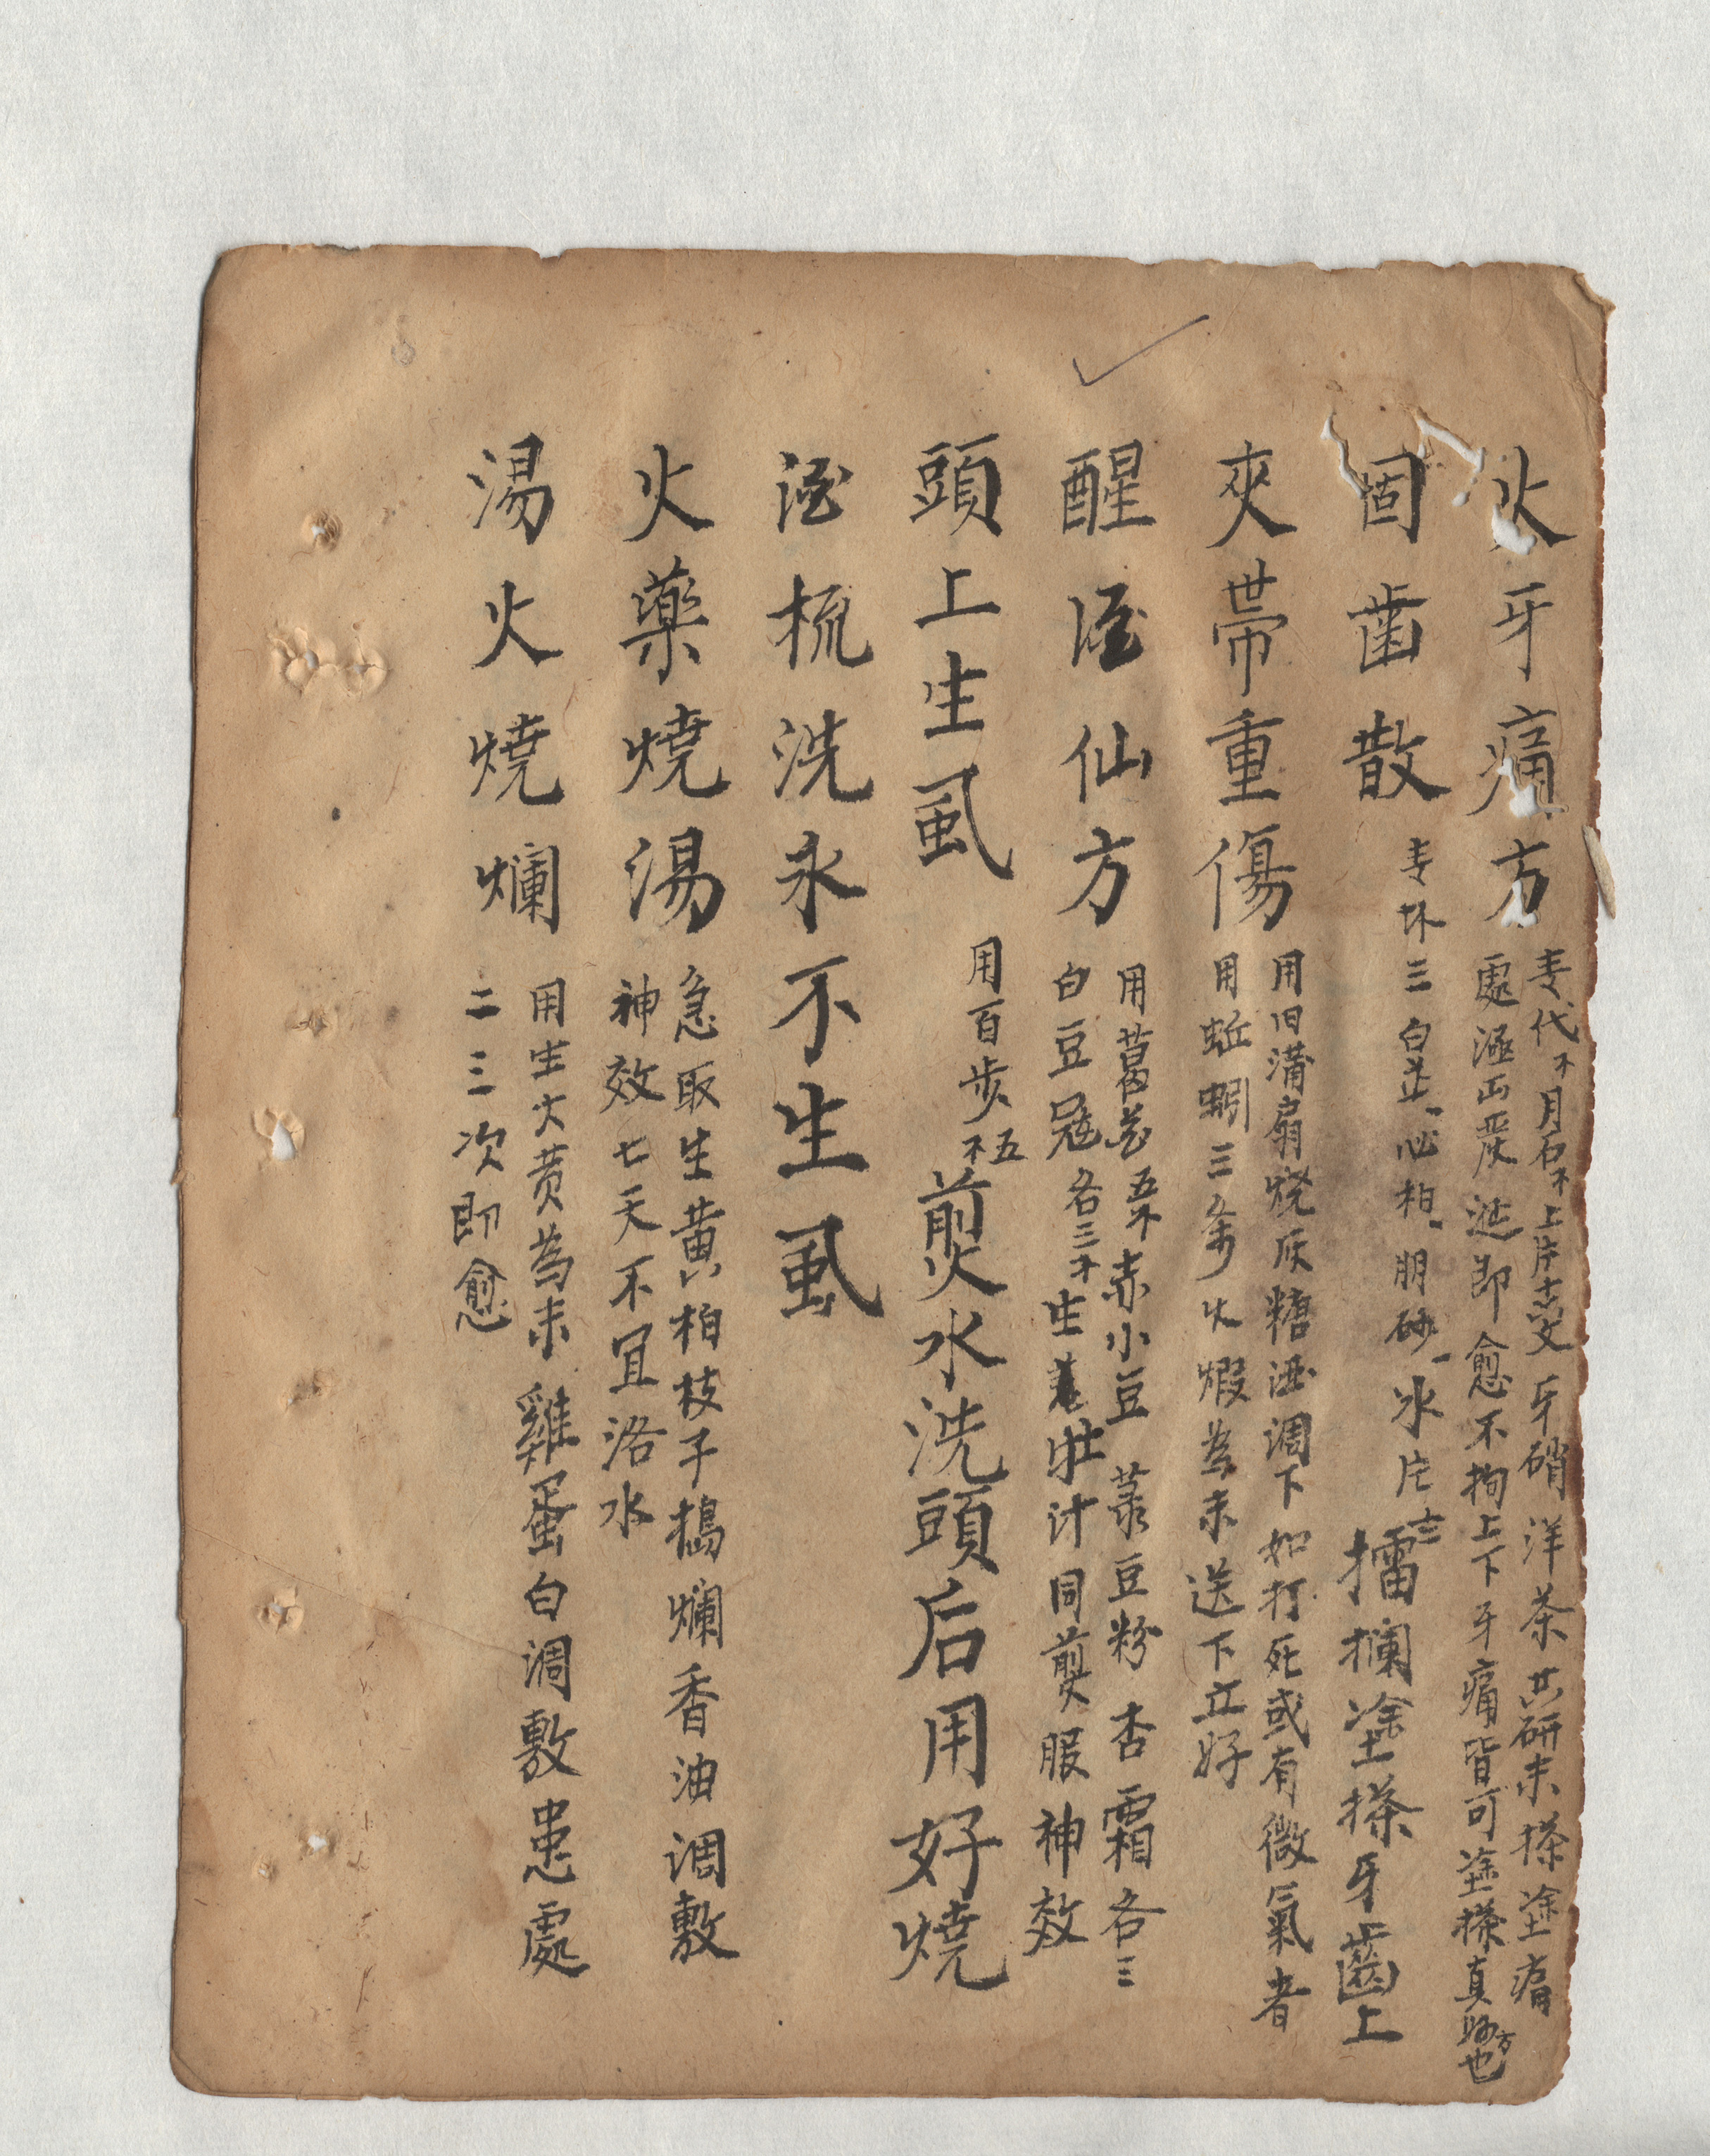 火牙痛方
月石 上片 牙硝 洋茶 共研末搽塗痛
處 即愈不拘上下牙痛皆可塗搽真妙方也
固齒散
三 白芷 朋砂 冰片
擂攔塗搽牙齒上
夾帶重傷
用旧蒲扇燒灰糖酒調下如打死或有微氣者
用蚯蚓三条火煆為末送下立好
醒酒仙方
用葛花 赤小豆 菉豆粉 杏霜各三
白豆冠各三 生 计同煎服神效
頭上生虱
用百步
煎水洗頭后用好燒
酒梳洗永不生虱
火藥燒湯
急取生黄柏枝子搗爛香油调敷
神效七天不宜洛水
湯火燒爛
用生大黄為末雞蛋白调敷患處
二三次即愈